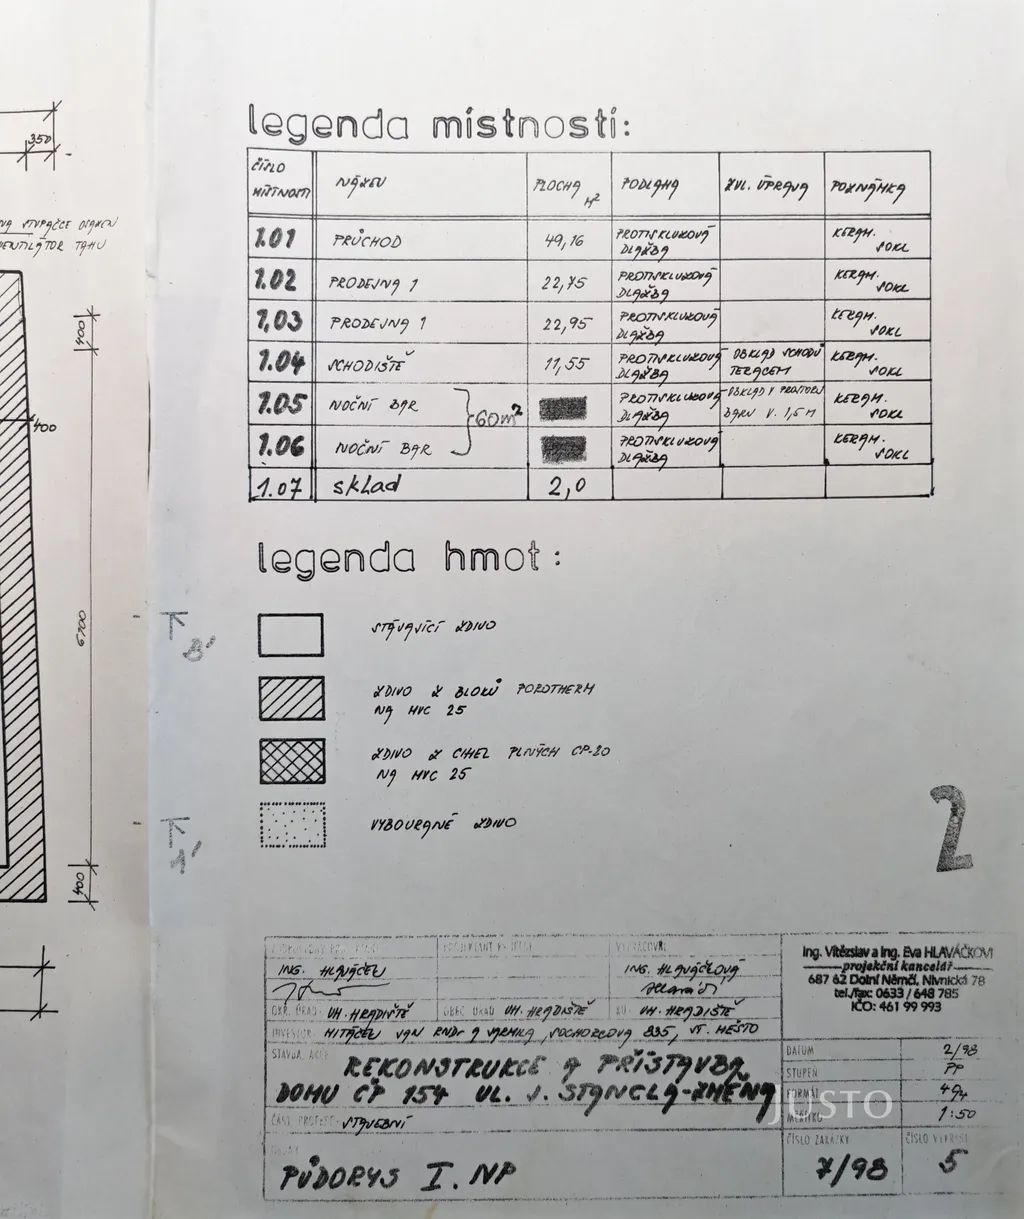 350
400
400
6100
400
legenda místností:
ČÍSLO MÍSTNOSTI
NÁZEV
PLOCHA M²
PODLAHA
ZVL. ÚPRAVA
POZNÁMKA
1.01 PRŮCHOD 49,16 PROTISKLUZOVÁ DLAŽBA KERAM. SOKL
1.02 PRODEJNA 1 22,75 PROTISKLUZOVÁ DLAŽBA KERAM. SOKL
1,03 PRODEJNA 1 22,95 PROTISKLUZOVÁ DLAŽBA KERAM. SOKL
1.04 SCHODIŠTĚ 11,55 PROTISKLUZOVÁ DLAŽBA OBKLAD SCHODŮ TERACEM KERAM. SOKL
1.05 NOČNÍ BAR PROTISKLUZOVÁ DLAŽBA OBKLAD V PROSTORU BARU V. 1,5 M KERAM. SOKL
60m²
1.06 NOČNÍ BAR PROTISKLUZOVÁ DLAŽBA KERAM. SOKL
1.07 sklad 2,0
legenda hmot:
STÁVAJÍCÍ ZDIVO
ZDIVO Z BLOKŮ POROTHERM
NA MVC 25
ZDIVO Z CIHEL PLNÝCH CP-20
NA MVC 25
VYBOURANÉ ZDIVO
2
ING. HLAVÁČEK
ING. HLAVÁČKOVÁ
OKR. ÚŘAD UH. HRADIŠTĚ
OBEC. ÚŘAD UH. HRADIŠTĚ
UH. HRADIŠTĚ
INVESTOR
835, ST. MĚSTO
STAVBA, AKCE
REKONSTRUKCE A PŘÍSTAVBA
DOMU ČP 154 UL. J. STANCLA-ZMĚNA
STAVEBNÍ
PŮDORYS I. NP
Ing. Vítězslav a Ing. Eva HLAVÁČKOVI
projekční kancelář
687 62 Dolní Němčí, Nivnická 78
tel./fax: 0633 / 648 785
IČO: 461 99 993
DATUM 2/98
STUPEŇ PP
FORMÁT 4A4
MĚŘÍTKO 1:50
ČÍSLO ZAKÁZKY
7/98
ČÍSLO VÝKRESU
5
JUSTO